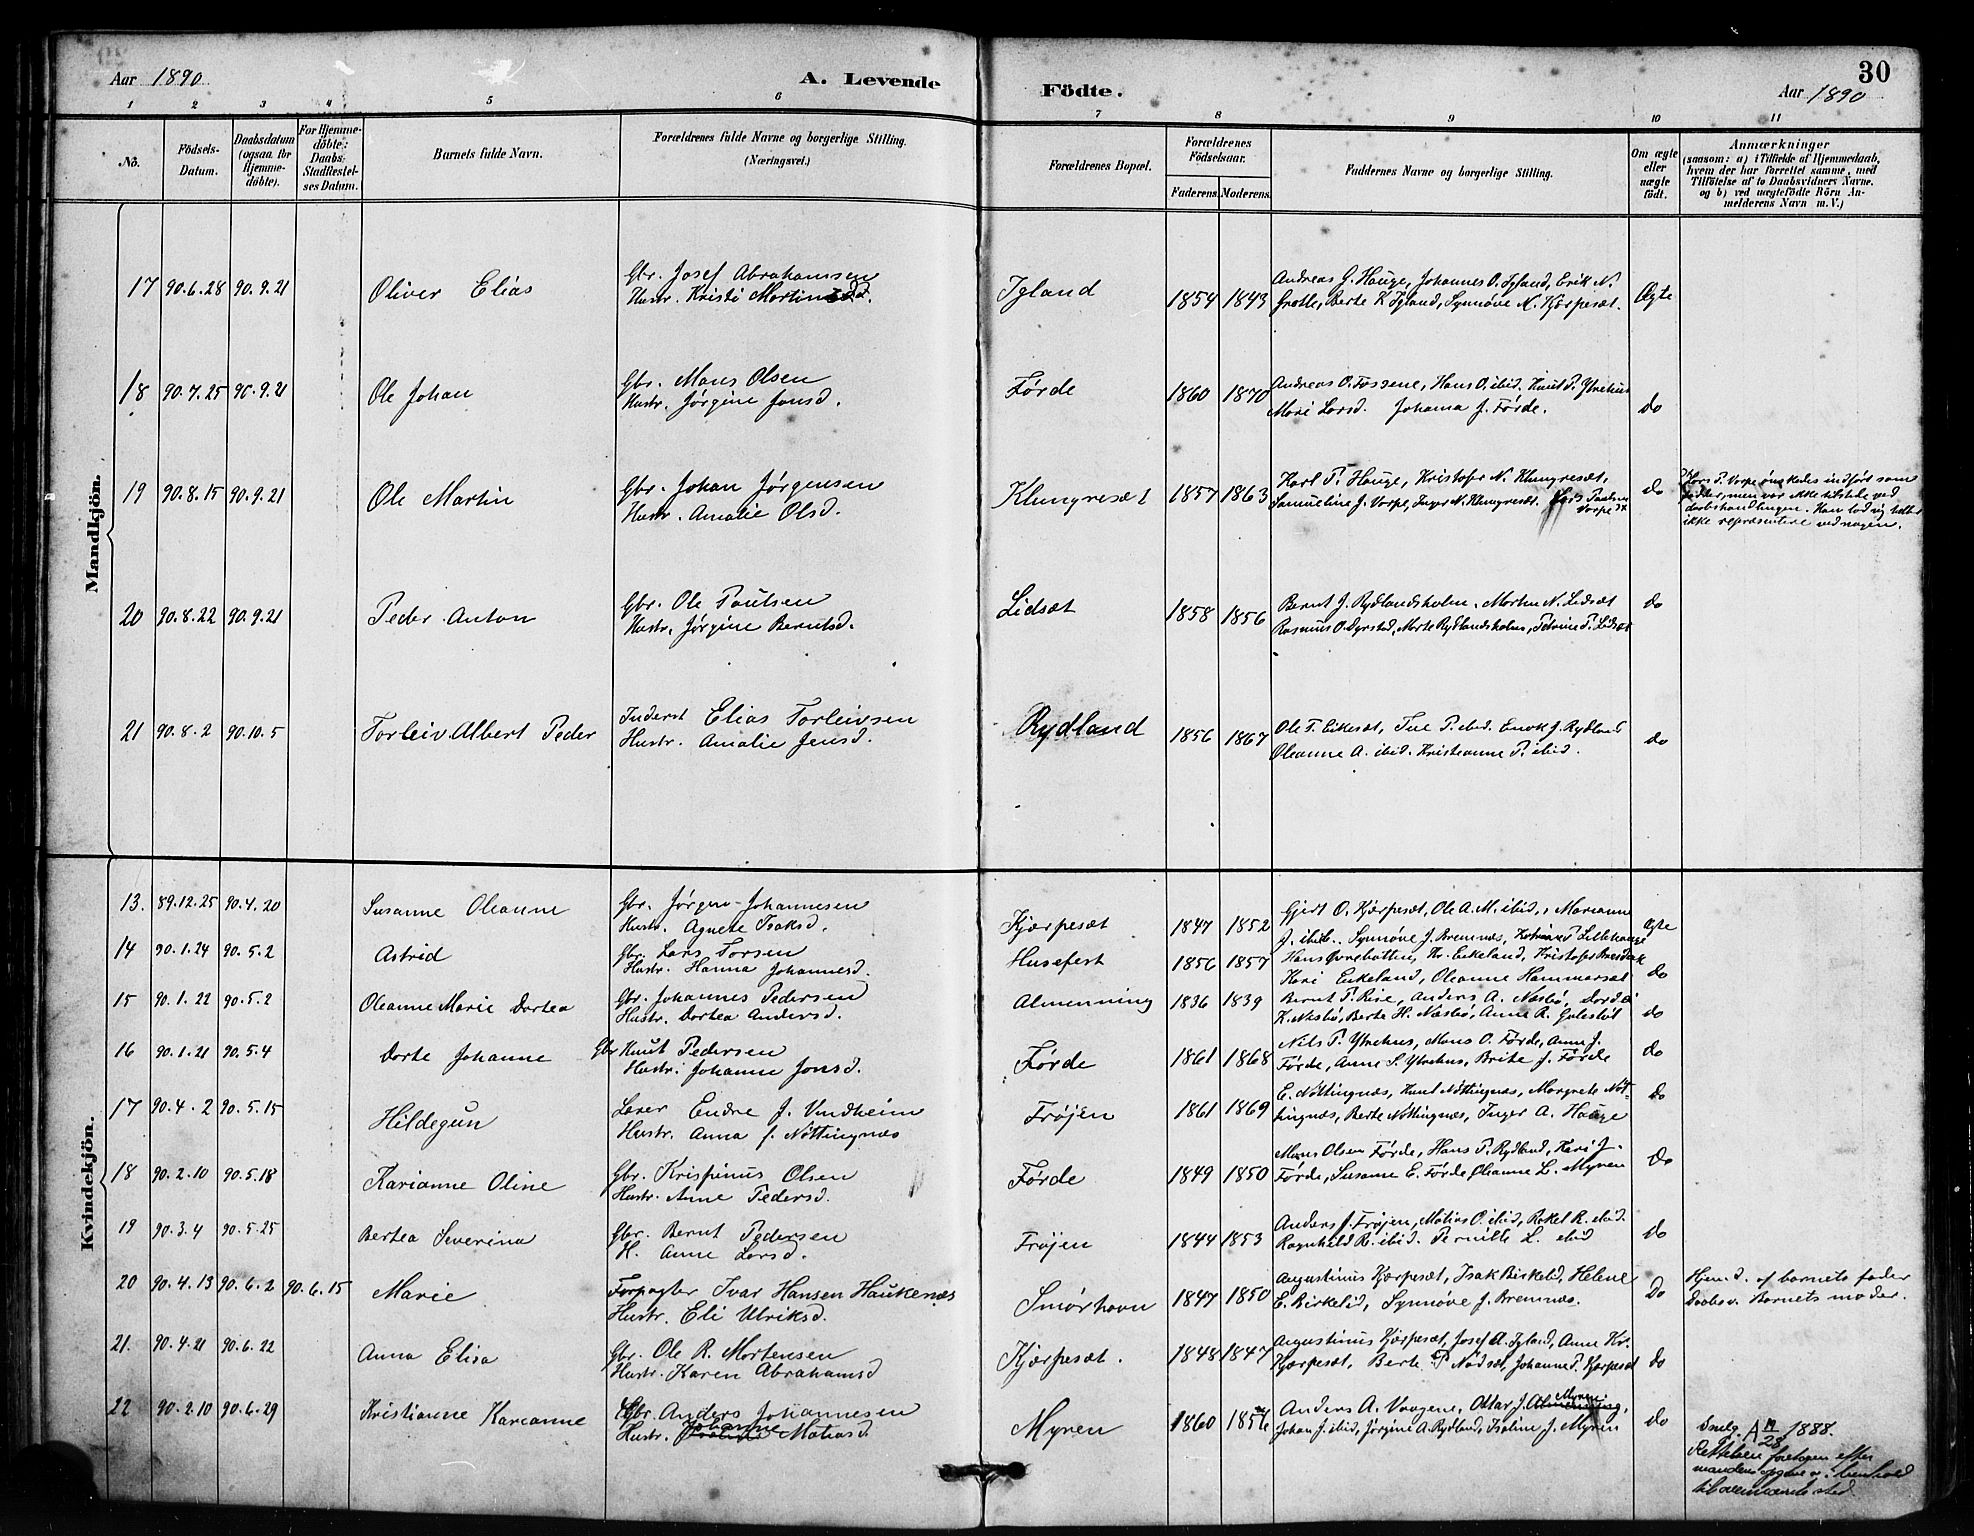 Aar 1890
A. Levende
Födte.
30
Aar 1890
1 2 3 4 5 6 7 8 9 10 11
No.
Födsels-
Datum.
Daabsdatum
(ogsaa for
Hjemme-
döbte).
For Hjemme-
döbte:
Daabs-
Stadfæstel-
ses Datum.
Barnets fulde Navn.
Forældrenes fulde Navne og borgerlige Stilling.
(Næringsvei.)
Forældrenes Bopæl.
Forældrenes
Födselsaar.
Faderens. Moderens.
Faddernes Navne og borgerlige Stilling.
Om ægte
eller
uægte
födt.
Anmærkninger
(saasom: a) i Tilfælde af Hjemmedaab,
hvem der har forrettet samme, med
Tilföielse af to Daabsvidners Navne.
og b) ved uægtefödte Börn An-
melderens Navn m. V.)
Mandkjön.
17 90.6.28 90.9.21 Oliver Elias
Gbr. Josef Abrahamsen
Hustr. Kristi Martinsd.
Igland 1854 1843
Andreas G. Hauge, Johannes O. Igland, Erik N.
Grotle, Berte K. Igland, Synnøve N. Kjørpesæt.
Ægte
18 90.7.25 90.9.21 Ole Johan
Gbr. Mons Olsen
Hustr. Jørgine Jonsd.
Førde 1860 1870
Andreas O. Fossene, Hans O. ibid. Knut P. Ytrehus
Mari Larsd. Johanna J. Førde.
do
19 90.8.15 90.9.21 Ole Martin
Gbr. Johan Jørgensen
Hustr. Amalie Olsd.
Klungresæt 1857 1863
Karl P. Hauge, Kristofer N. Klungresæt,
Samueline J. Vorpe, Inger N. Klungresæt. Lars Paulsen
Vorpe
do
Lars P. Vorpe ønskedes indført som
fadder, men var ikke tilstede ved
daabshandlingen. Han lod sig heller
ikke repræsentere ved nogen.
20 90.8.22 90.9.21 Peder Anton
Gbr. Ole Paulsen
Hustr. Jørgine Berntsd.
Lidsæt 1858 1856
Bernt J. Rydlandsholm, Morten N. Lidsæt
Rasmus O. Dyrstad, Marte Rydlandsholm, Petrine P. Lidsæt
do
21 90.8.2 90.10.5 Torleiv Albert Peder
Inderst Elias Torleivsen
Hustr. Amalie Jensd.
Rydland 1856 1867
Ole T. Eikesæt, P. ibid. Enok J. Rydland
Oleanne A. ibid. Kristianne P. ibid.
do
Kvindekjön.
13. 89.12.25 90.4.20 Susanne Oleanne
Gbr. Jørgen Johannesen
Hustr. Agnete Isaksd.
Kjørpesæt 1847 1852
Gjert O. Kjørpesæt, Ole A. M. ibid., Marianne
J. ibid. Synnøve J. Bremnæs, Lillehauge
Ægte
14 90.1.24 90.5.2 Astrid
Gbr. Lars Torsen
Hustr. Hanna Johannesd.
Husefest 1856 1857
Hans Øvrebotten, Kr. Eikeland, Kristofer
Kari Eikeland, Oleanne Hammersæt
do
15 90.1.22 90.5.2 Oleanne Marie Dortea
Gbr. Johannes Pedersen
Hustr. Dortea Andersd.
Almenning 1836 1839
Bernt P. Rise, Anders A. Nasbø, Dordei
K. Nasbø, Berte H. Nasbø, Anne R.
do
16 90.1.21 90.5.4 Dorte Johanne
Gbr Knut Pedersen
Hustr. Johanne Jonsd.
Førde 1861 1868
Nils P. Ytrehus, Mons O. Førde, Anne J.
Førde, Anne S. Ytrehus, Brite J. Førde
do
17 90.4.2 90.5.15 Hildegun
Lærer Endre J. Vindheim
Hustr. Anna J. Nøttingnæs
Frøjen 1861 1869
E. Nøttingnæs, Knut Nøttingnæs, Margrete Nøt-
tingnæs, Berte Nøttingnæs, Inger A. Hauge
do
18 90.2.10 90.5.18 Karianne Oline
Gbr. Krispinus Olsen
Hustr. Anne Pedersd.
Førde 1849 1850
Mons Olsen Førde, Hans P. Rydland, Kari J.
Førde, Susanne E. Førde, Oleanne L. Myren
do
19 90.3.4 90.5.25 Bertea Severina
Gbr. Bernt Pedersen
H. Anne Larsd.
Frøjen 1844 1853
Anders J. Frøjen, Matias O. ibid, Rakel R. ibid.
Ragnhild R. ibid. Pernille L. ibid
do
20 90.4.13 90.6.2 90.6.15 Marie
Forpagter Ivar Hansen Haukenæs
Hustr. Eli Ulriksd.
Smørhavn 1847 1850
Augustinus Kjørpesæt, Isak Birkelid, Helene
E. Birkelid, Synnøve J. Bremnæs.
do
Hjemd. af barnets fader
Daabsv. Barnets moder.
21. 90.4.21 90.6.22 Anna Elisa
Gbr. Ole R. Mortensen
Hustr. Karen Abrahamsd
Kjørpesæt. 1848 1847
Augustinus Kjørpesæt, Josef A. Igland, Anne Kr.
Kjørpesæt, Berte P. Nødsæt, Johanne P. Kjørpesæt
do
22 90.2.10 90.6.29 Kristianne Karianne
Gbr. Anders Johannesen
Johanne
Hustr. Matiasd.
Myren 1860 1856
Myren
Anders A. Vaagene, Ottar J. Almenning,
Johan J. ibid, Jørgine A. Rydland, Isaline J. Myren
do
A 1888.
Rettelsen foretagen efter
mandens opgave